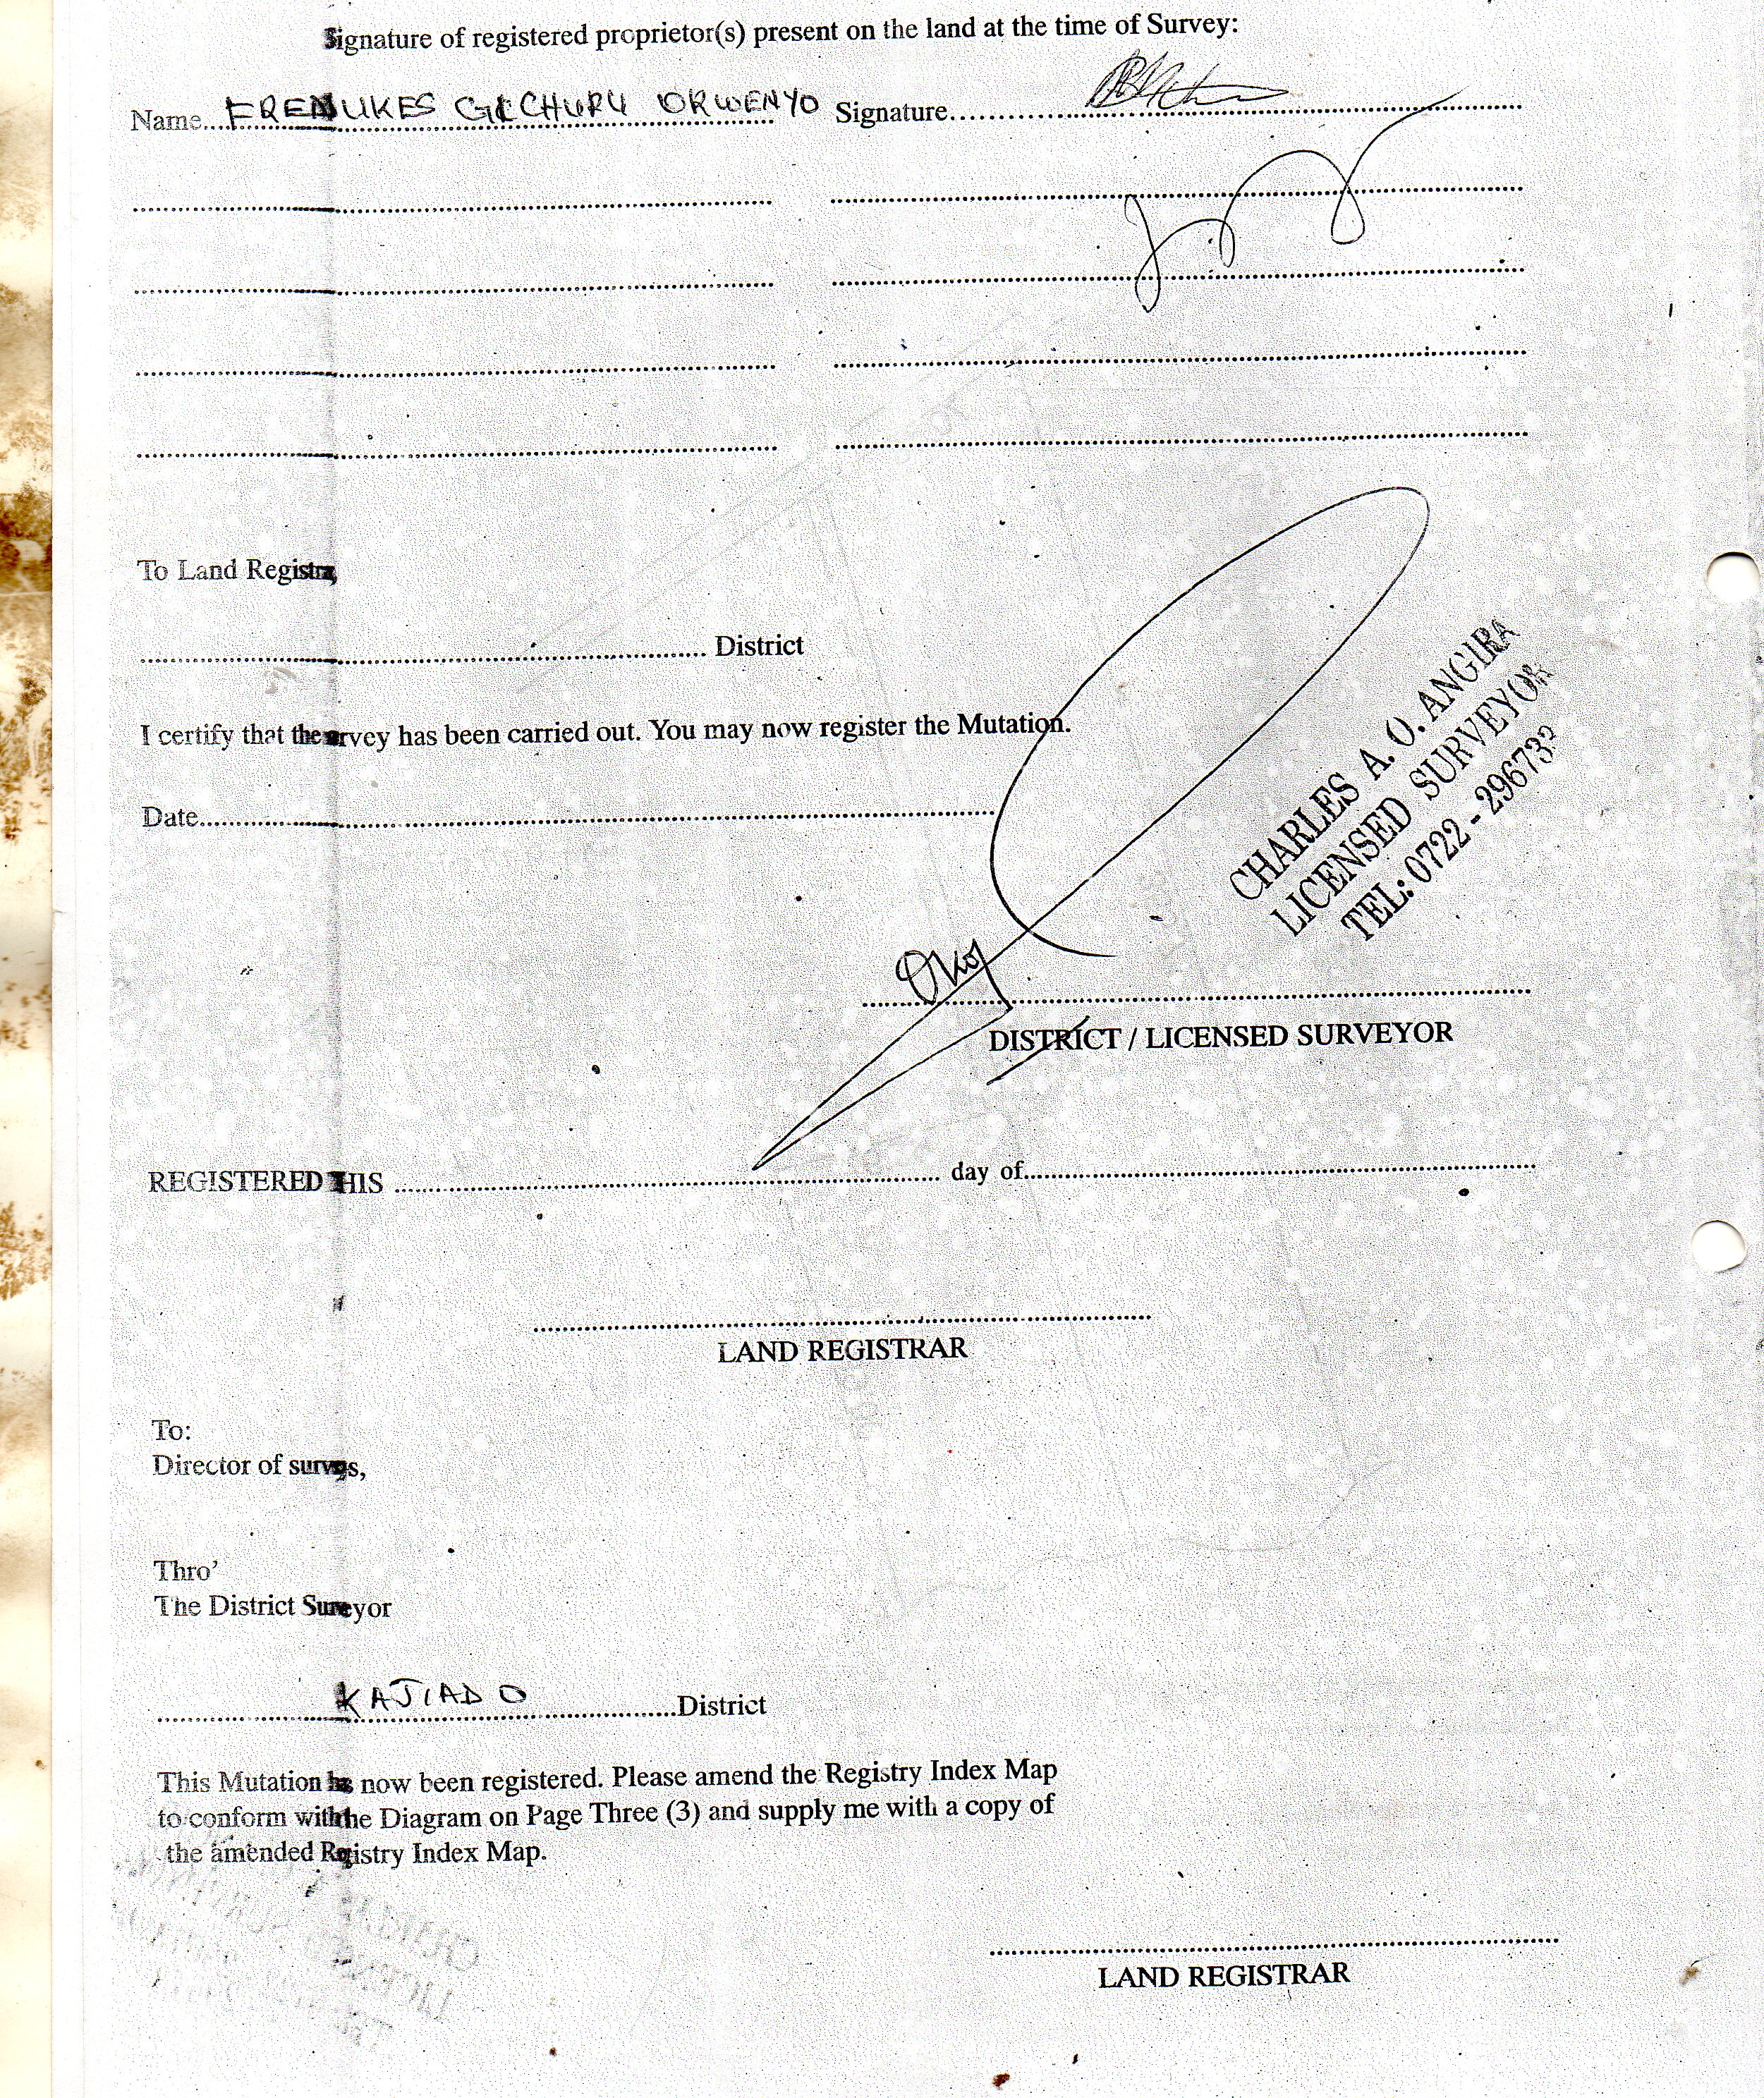 Signature of registered proprietor(s) present on the land at the time of Survey:
Name.. GICHURU ORWENYO Signature
To Land Registra
District
I certify that the survey has been carried out. You may now register the Mutation.
Date
CHARLES A. O. ANGIRA
LICENSED SURVEYOR
TEL: 0722 - 296733
DISTRICT / LICENSED SURVEYOR
REGISTERED THIS day of
LAND REGISTRAR
To:
Director of surveys,
Thro'
The District Surveyor
KAJIADO District
This Mutation has now been registered. Please amend the Registry Index Map
to conform with the Diagram on Page Three (3) and supply me with a copy of
the amended Registry Index Map.
LAND REGISTRAR